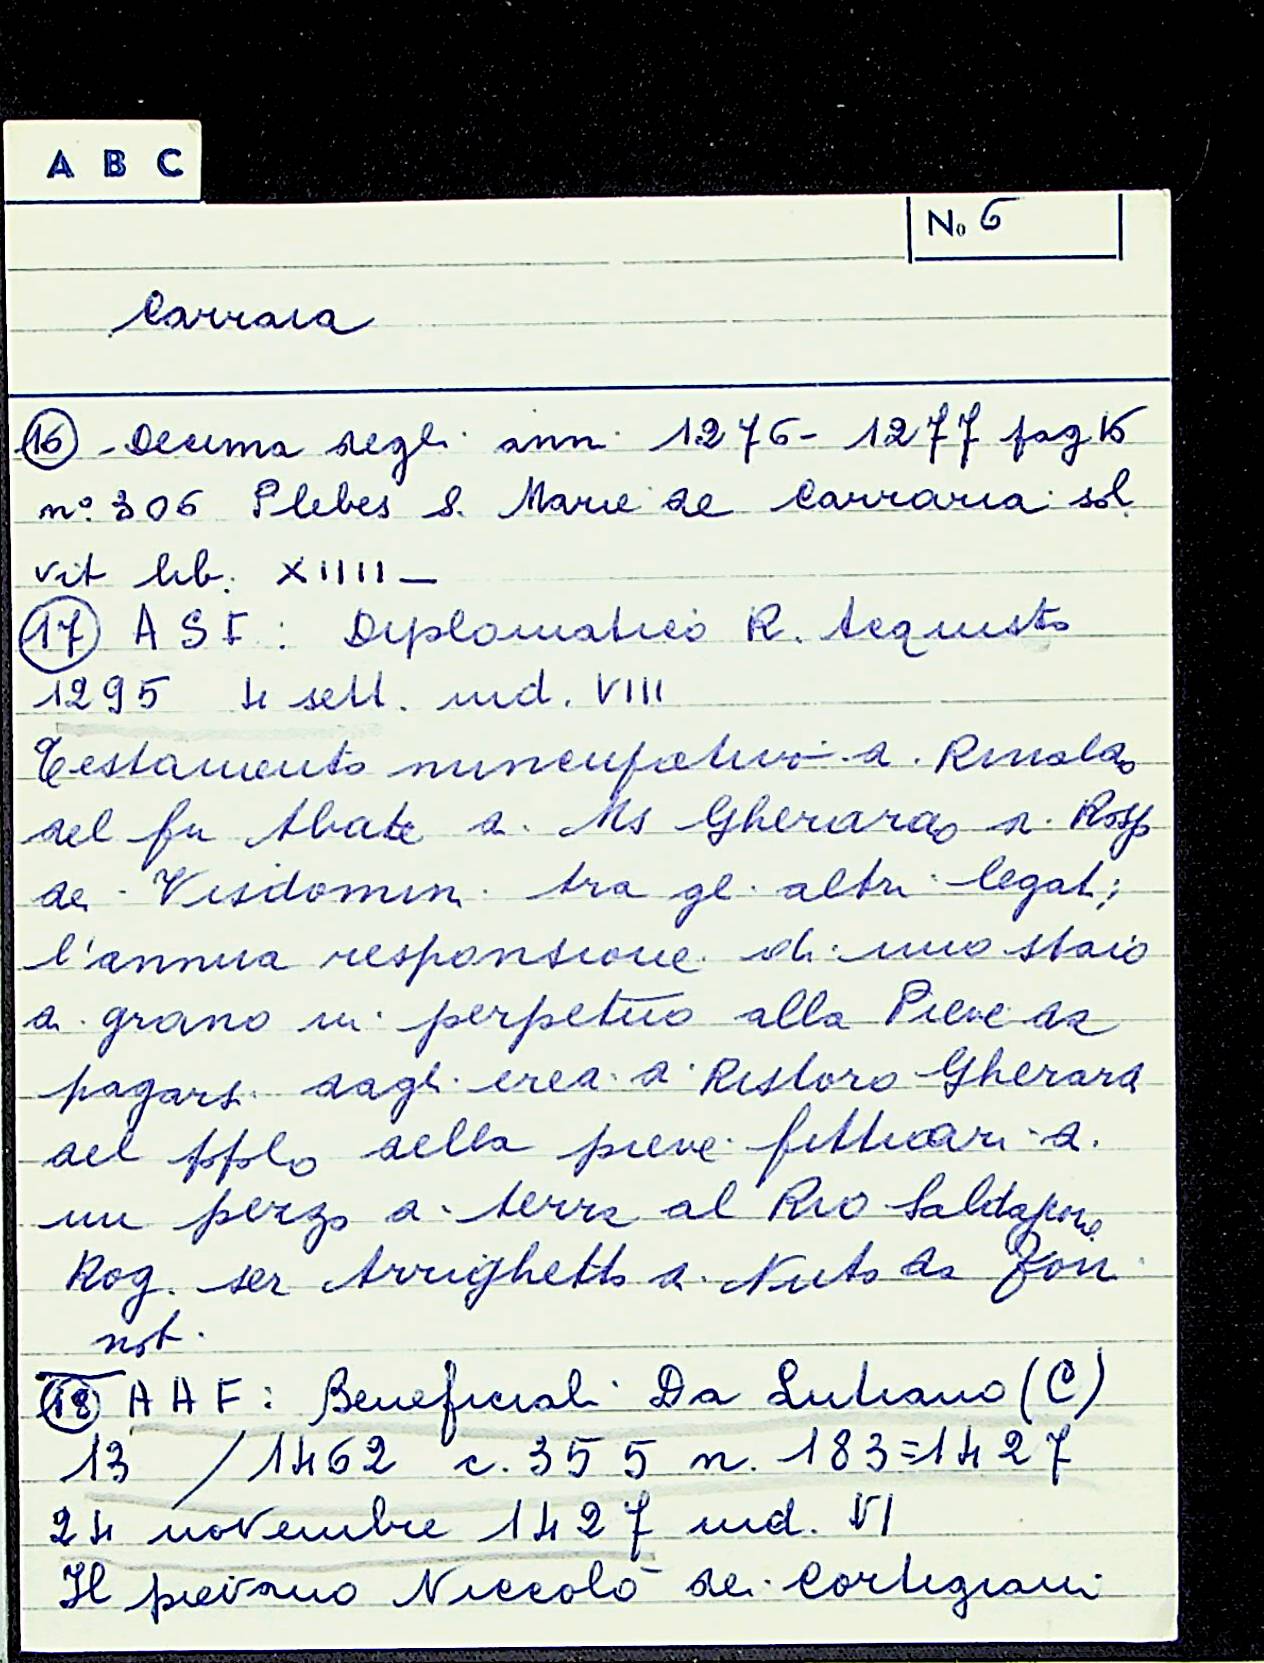 A B C
No 6
Carraia
16 - Decima degli anni 1276-1277 pag 15
n° 306 Plebes S. Marie de Carraria sol
vit lib. XIIII -
17 A S F : Diplomatico R. Acquisto
1295 4 sett. ind. VIII
Testamento nuncupativo di Rinaldo
del fu Abate di Ms Gherardo di
dei Visdomini tra gli altri legati;
l'annua responsione di uno staio
di grano in perpetuo alla Pieve da
pagarsi dagli eredi di Ristoro Gherardi
del pplo della pieve fittuari di
un pezzo di terra al Rio
Rog. ser Arrighetto di Nuto da
not.
18 A A F : Beneficiali Da Lutiano (C)
13 / 1462 c. 355 n. 183=1427
24 novembre 1427 ind. VI
Il pievano Niccolò dei Cortigiani